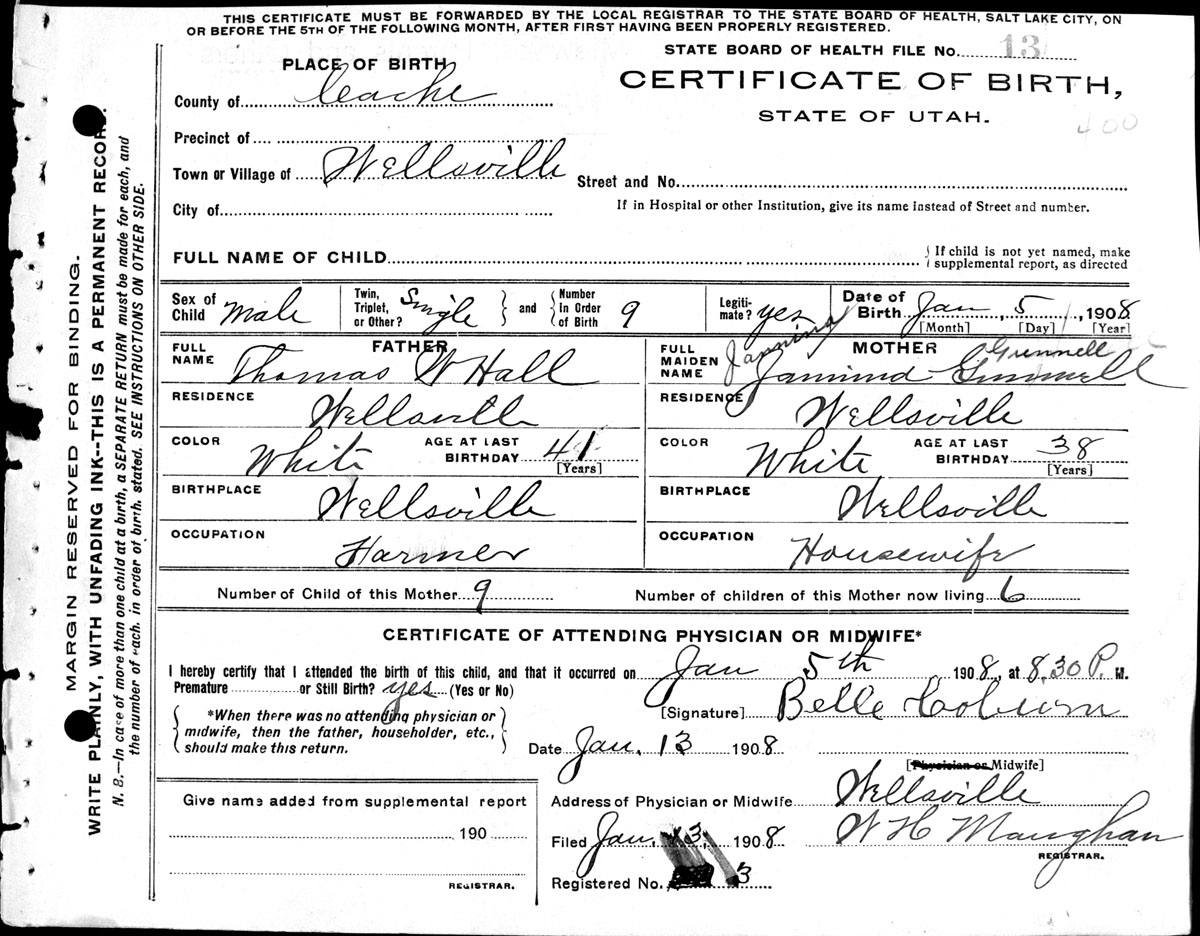 THIS CERTIFICATE MUST BE FORWARDED BY THE LOCAL REGISTRAR TO THE STATE BOARD OF HEALTH, SALT LAKE CITY, ON
OR BEFORE THE 5TH OF THE FOLLOWING MONTH, AFTER FIRST HAVING BEEN PROPERLY REGISTERED.
STATE BOARD OF HEALTH FILE No. 13
PLACE OF BIRTH
CERTIFICATE OF BIRTH,
STATE OF UTAH.
400
County of Ceache
Precinct of
Town or Village of Wellsville
Street and No.
City of
If in Hospital or other Institution, give its name instead of Street and number.
FULL NAME OF CHILD
{ If child is not yet named, make
supplemental report, as directed
Sex of Child Male Twin, Triplet, or Other? Single and Number In Order of Birth 9 Legiti-mate? yes Date of Birth Jan 5, 1908
[Month] [Day] [Year]
FULL NAME FATHER Thomas W Hall
FULL MAIDEN NAME MOTHER Gunnell
Wellsville
RESIDENCE Wellsville
RESIDENCE Wellsville
COLOR White AGE AT LAST BIRTHDAY 41 [Years]
COLOR White AGE AT LAST BIRTHDAY 38 [Years]
BIRTHPLACE Wellsville
BIRTHPLACE Wellsville
OCCUPATION Farmer
OCCUPATION Housewife
Number of Child of this Mother 9 Number of children of this Mother now living 6
CERTIFICATE OF ATTENDING PHYSICIAN OR MIDWIFE*
I hereby certify that I attended the birth of this child, and that it occurred on Jan 5th 1908, at 8,30 P. M.
Premature or Still Birth? yes (Yes or No)
[Signature] Belle Coburn
*When there was no attending physician or
midwife, then the father, householder, etc.,
should make this return.
Date Jan. 13 1908
[Physician or Midwife]
Give name added from supplemental report
Address of Physician or Midwife Wellsville
190
Filed Jan. 13, 1908 W H Maughan
REGISTRAR.
Registered No. 3
REGISTRAR.
MARGIN RESERVED FOR BINDING.
WRITE PLAINLY, WITH UNFADING INK--THIS IS A PERMANENT RECORD.
N. B.—In case of more than one child at a birth, a SEPARATE RETURN must be made for each, and
the number of each. in order of birth. stated. SEE INSTRUCTIONS ON OTHER SIDE.